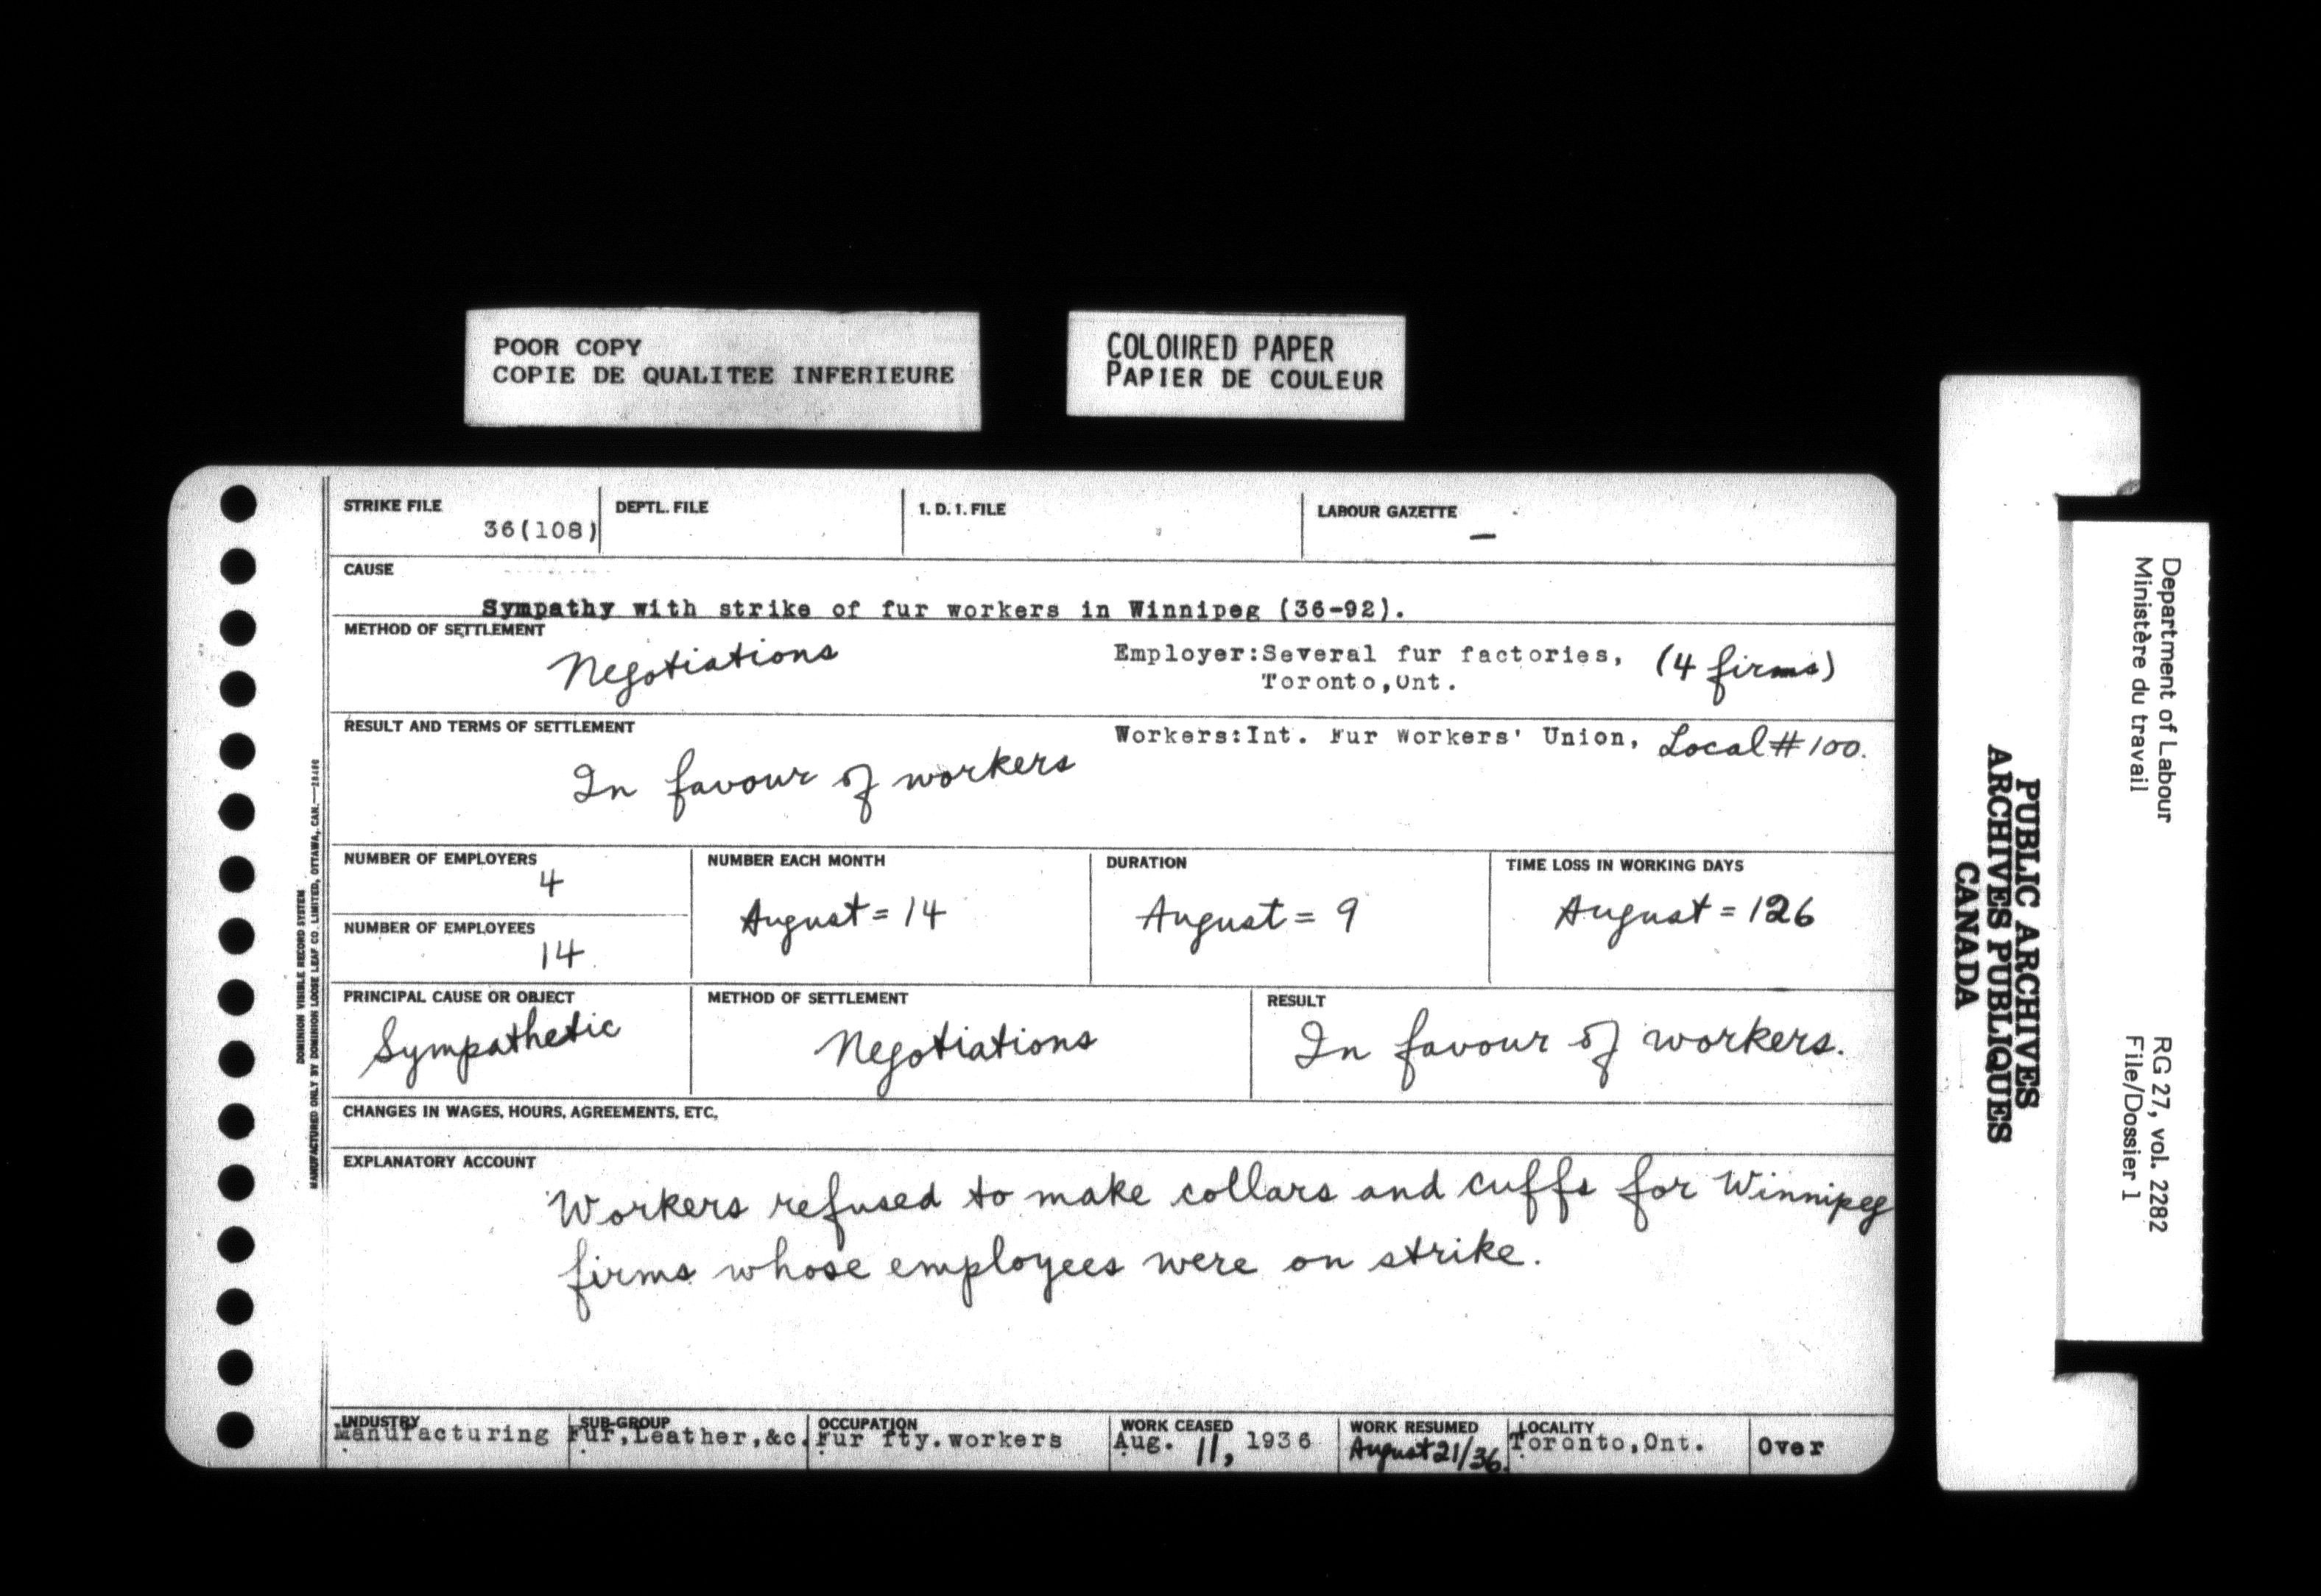 POOR COPY
COPIE DE QUALITEE INFERIEURE
COLOURED PAPER
PAPIER DE COULEUR
STRIKE FILE
36(108)
DEPTL. FILE
I. D. I. FILE
LABOUR GAZETTE
—
CAUSE
Sympathy with strike of fur workers in Winnipeg (36-92).
METHOD OF SETTLEMENT
Negotiations
Employer:Several fur factories, (4 firms)
Toronto,Ont.
RESULT AND TERMS OF SETTLEMENT
In favour of workers
Workers:Int. Fur Workers' Union, Local #100.
NUMBER OF EMPLOYERS
4
NUMBER OF EMPLOYEES
14
NUMBER EACH MONTH
August = 14
DURATION
August = 9
TIME LOSS IN WORKING DAYS
August = 126
PRINCIPAL CAUSE OR OBJECT
Sympathetic
METHOD OF SETTLEMENT
Negotiations
RESULT
In favour of workers.
CHANGES IN WAGES, HOURS, AGREEMENTS, ETC.
EXPLANATORY ACCOUNT
Workers refused to make collars and cuffs for Winnipeg
firms whose employees were on strike.
INDUSTRY
Manufacturing
SUB-GROUP
Fur,Leather,&c.
OCCUPATION
Fur fty.workers
WORK CEASED
Aug. 11, 1936
WORK RESUMED
August 21/36.
LOCALITY
Toronto,Ont.
Over
DOMINION VISIBLE RECORD SYSTEM
MANUFACTURED ONLY BY DOMINION LOOSE LEAF CO. LIMITED, OTTAWA, CAN.
PUBLIC ARCHIVES
ARCHIVES PUBLIQUES
CANADA
Department of Labour
Ministère du travail
RG 27, vol. 2282
File/Dossier 1